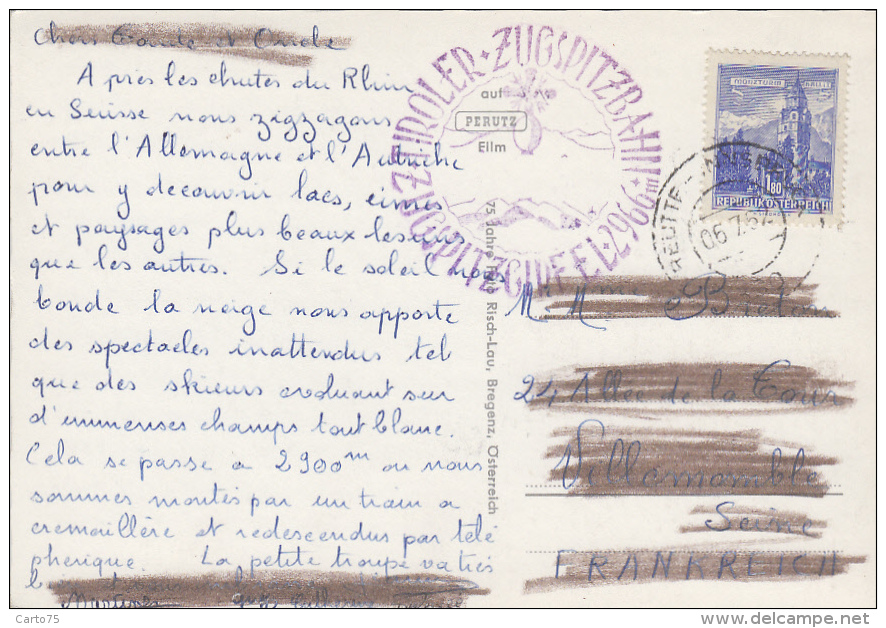 Chers Tante et Oncle
Après les chutes du Rhin
en Suisse nous zigzagons
entre l'Allemagne et l'Autriche
pour y decouvrir lacs, cimes
et paysages plus beaux les uns
que les autres. Si le soleil nous
boude la neige nous apporte
des spectacles inattendus tel
que des skieurs evoluant sur
d'immenses champs tout blanc.
Cela se passe a 2900m ou nous
sommes montés par un train a
cremaillère et redescendus par télé
pherique. La petite troupe va très
TIROLER · ZUGSPITZBAHN ·
ZUGSPITZGIPFEL 2966 m
auf
PERUTZ
Film
75 Jahre Foto Risch-Lau, Bregenz, Österreich
MÜNZTURM HALL I.T.
1.80
REPUBLIK ÖSTERREICH
REUTTE
06.7.62
M. Mme
24 Allée de la Tour
Villemomble
Seine
FRANKREICH
Carto75
delcampe.net